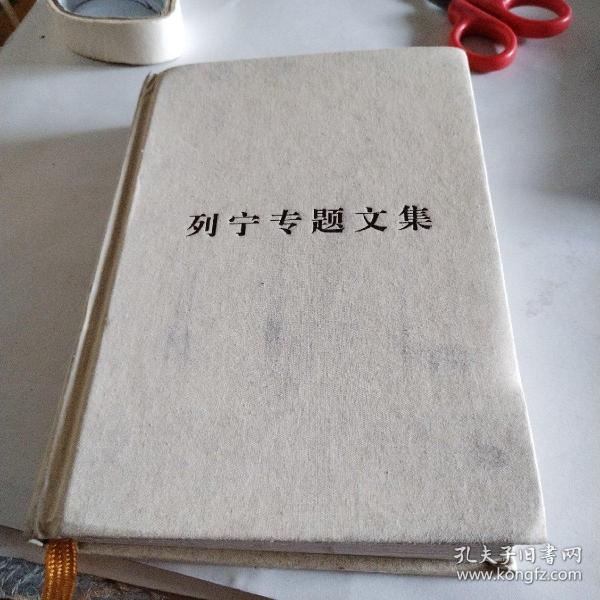 列宁专题文集
孔夫子旧書网
www.kongfz.com